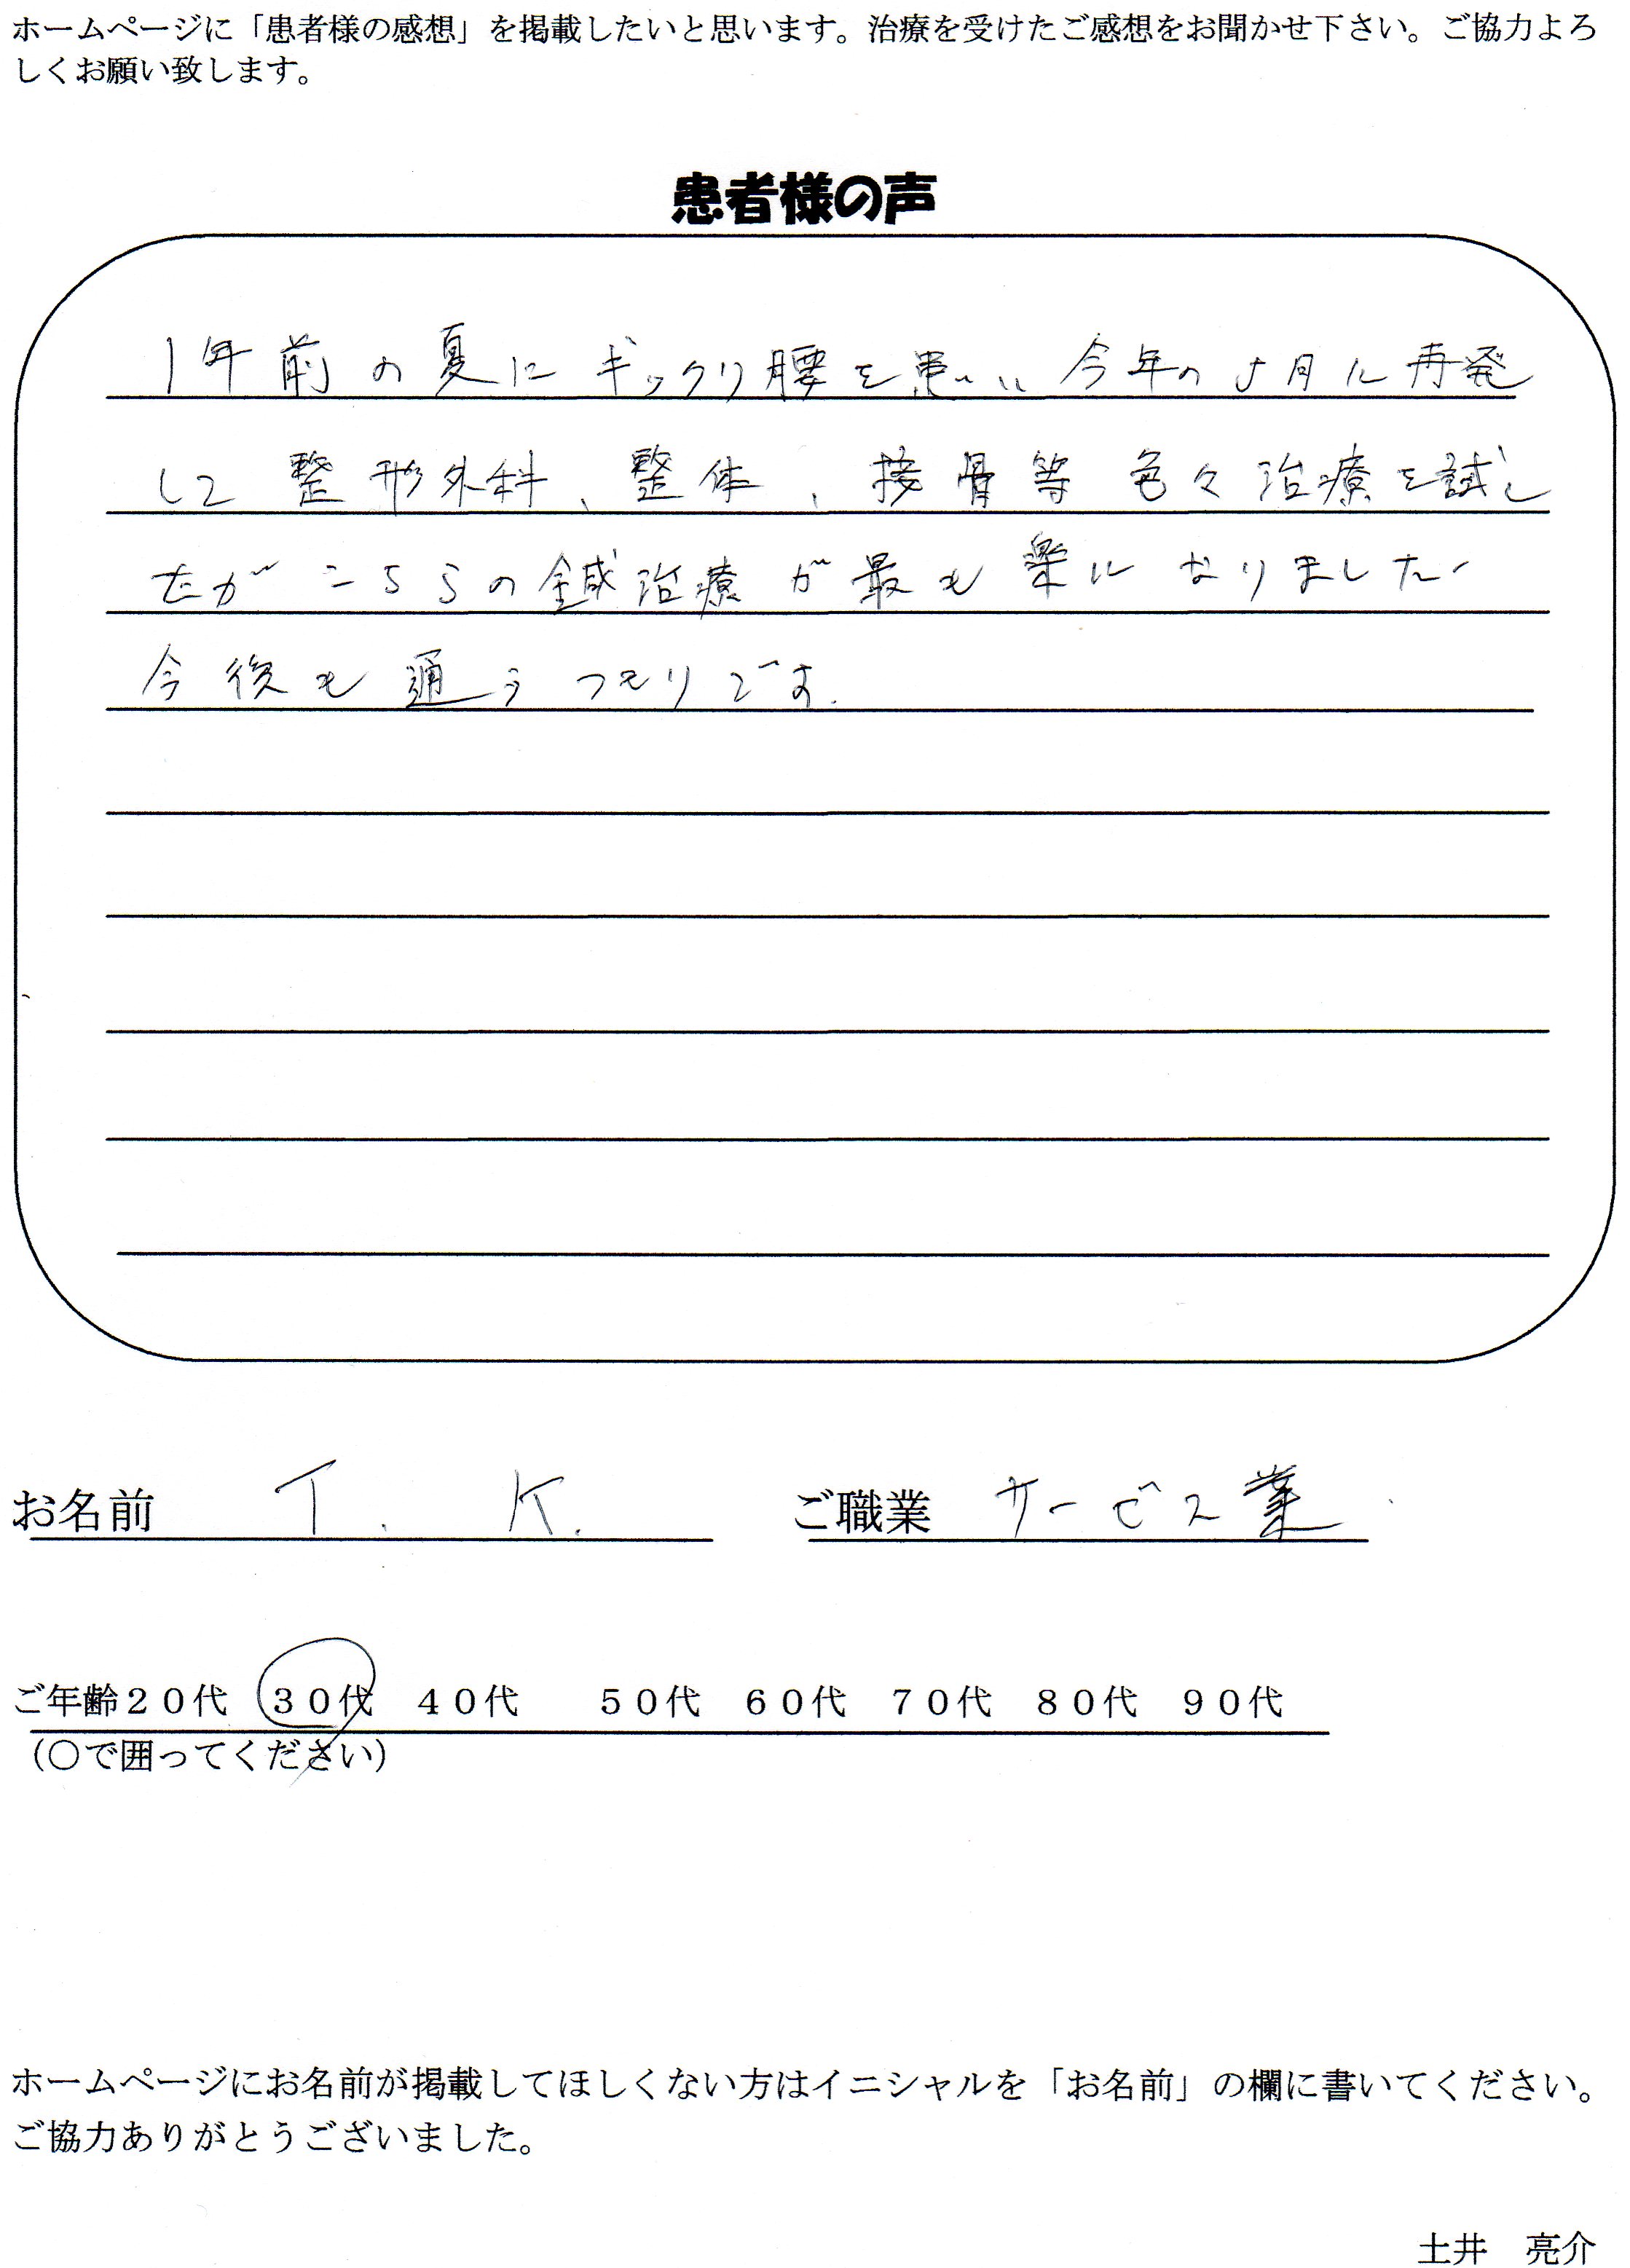 ホームページに「患者様の感想」を掲載したいと思います。治療を受けたご感想をお聞かせ下さい。ご協力よろ
しくお願い致します。
患者様の声
1年前の夏にギックリ腰を患い 今年の5月に再発
して整形外科、整体、接骨等色々治療を試し
たがこちらの鍼治療が最も楽になりました
今後も通うつもりです.
お名前 T. K. ご職業 サービス業
ご年齢20代 30代 40代 50代 60代 70代 80代 90代
(○で囲ってください)
ホームページにお名前が掲載してほしくない方はイニシャルを「お名前」の欄に書いてください。
ご協力ありがとうございました。
土井 亮介